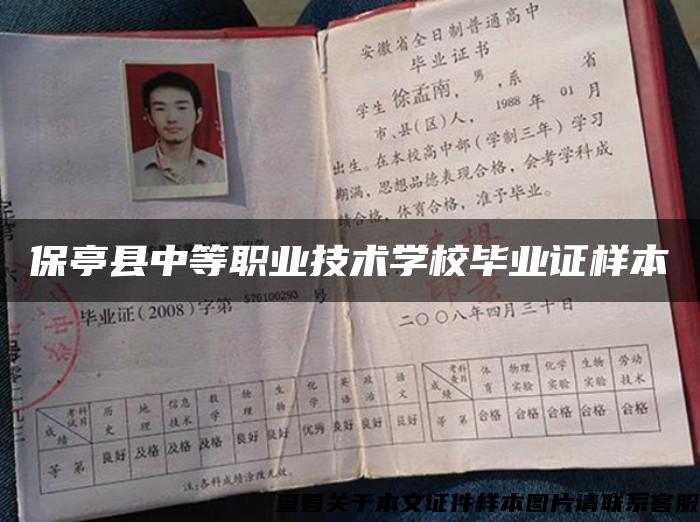 安徽省全日制普通高中
毕业证书
学生 徐孟南，男，系 省
市、县(区)人，1988 年 01 月
出生。在本校高中部（学制三年）学习
期满，思想品德表现合格，会考学科成
绩合格，体育合格，准予毕业。
保亭县中等职业技术学校毕业证样本
毕业证(2008)字第 576100293 号
二〇〇八年四月三十日
成绩 考试科目 历史 地理 信息技术 数学 物理 生物 化学 英语 政治 语文
等第 良好 及格 及格 及格 良好 良好 优秀 良好 良好 良好
注:各科成绩涂改无效。
成绩 考查科目 体育 物理实验 化学实验 生物实验 劳动技术
等第 合格 合格 合格 合格 合格
查看关于本文证件样本图片请联系客服